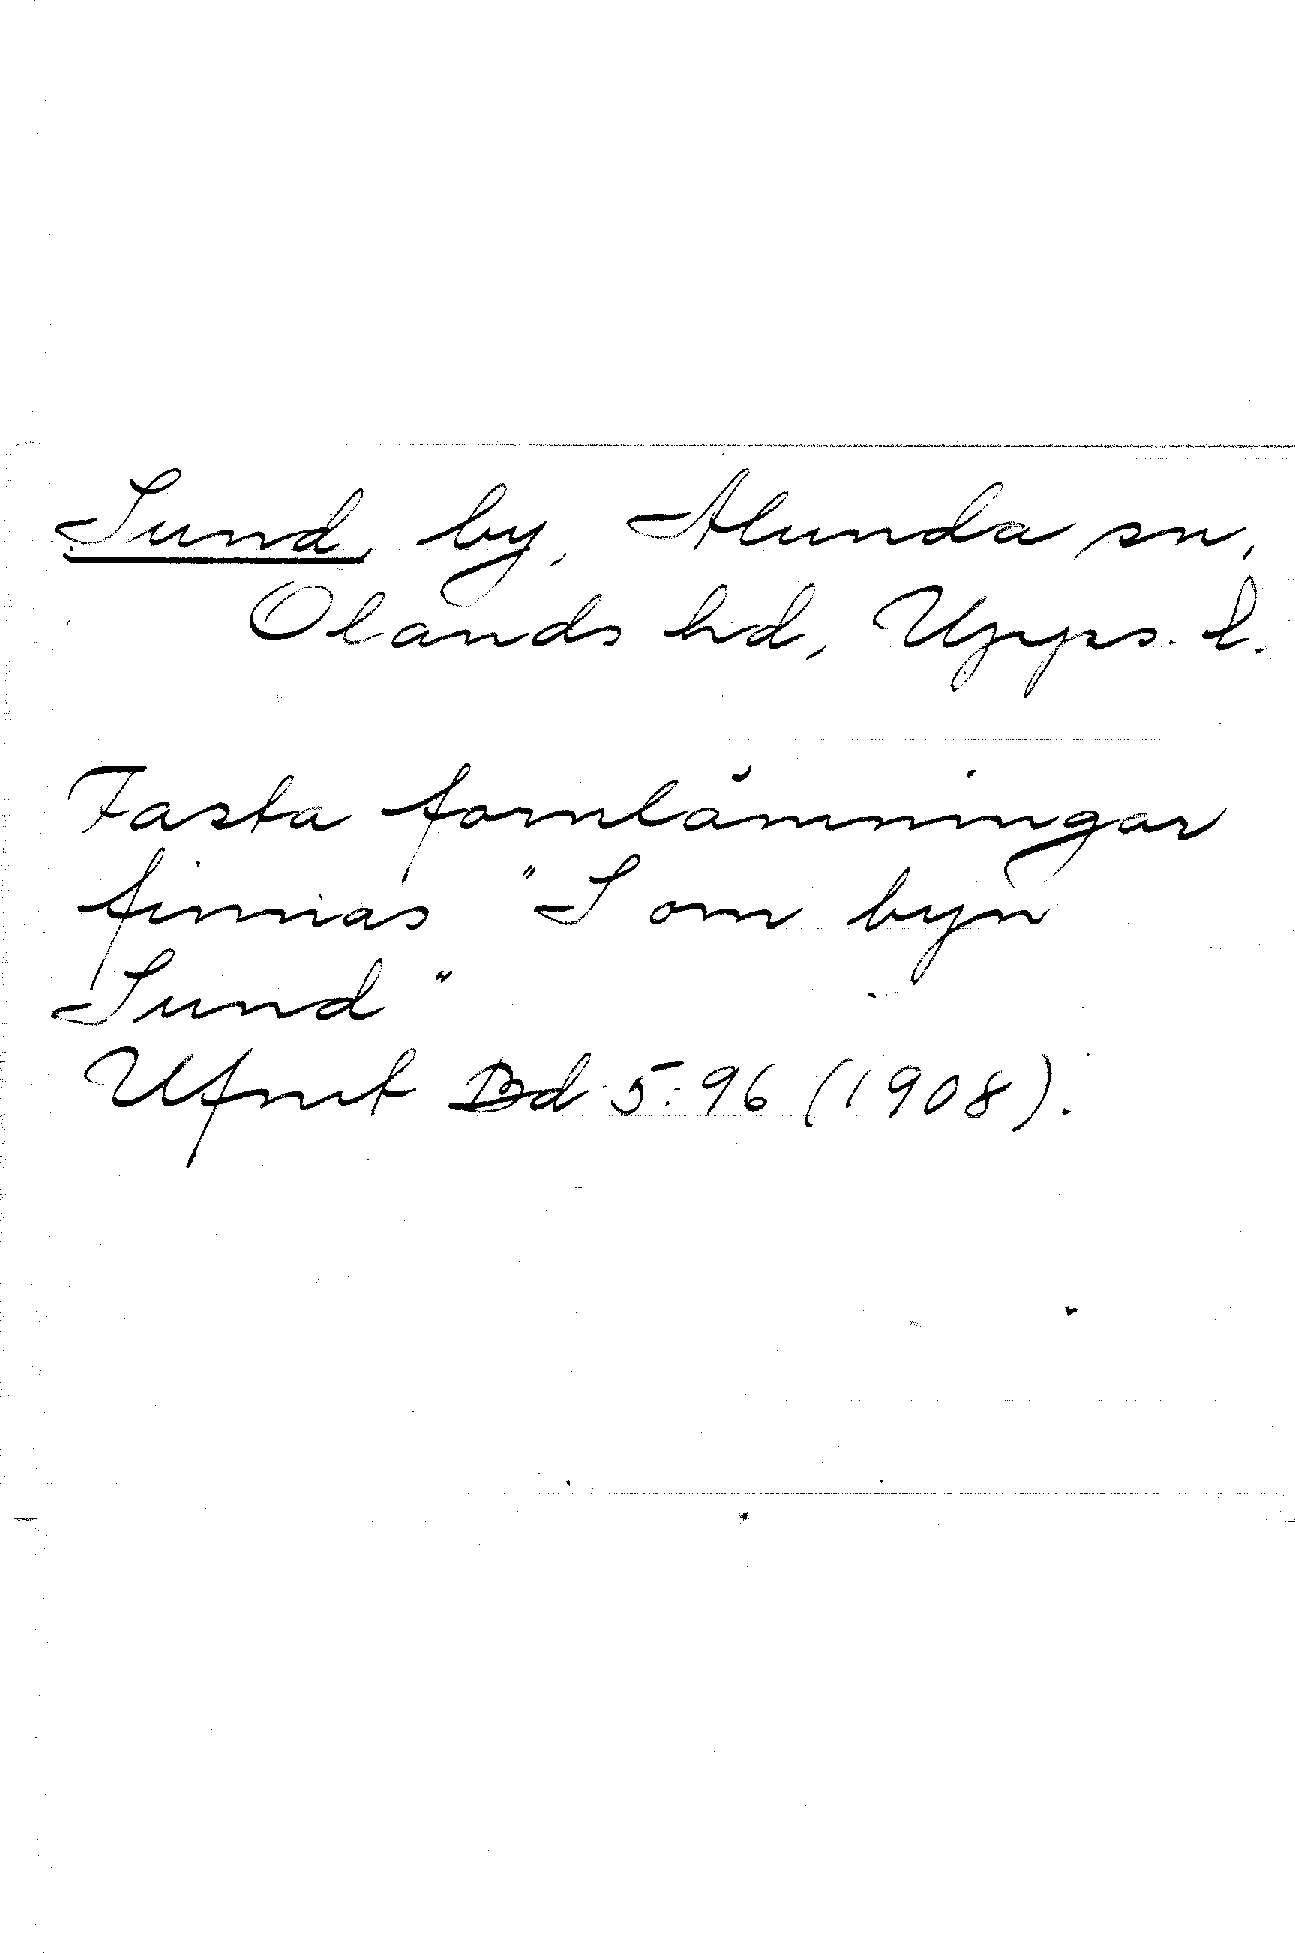 Sund, by, Alunda sn,
Olands hd, Upps. l.
Fasta fornlämningar
finnas "S om byn
Sund"
Ufmt Bd 5:96 (1908).